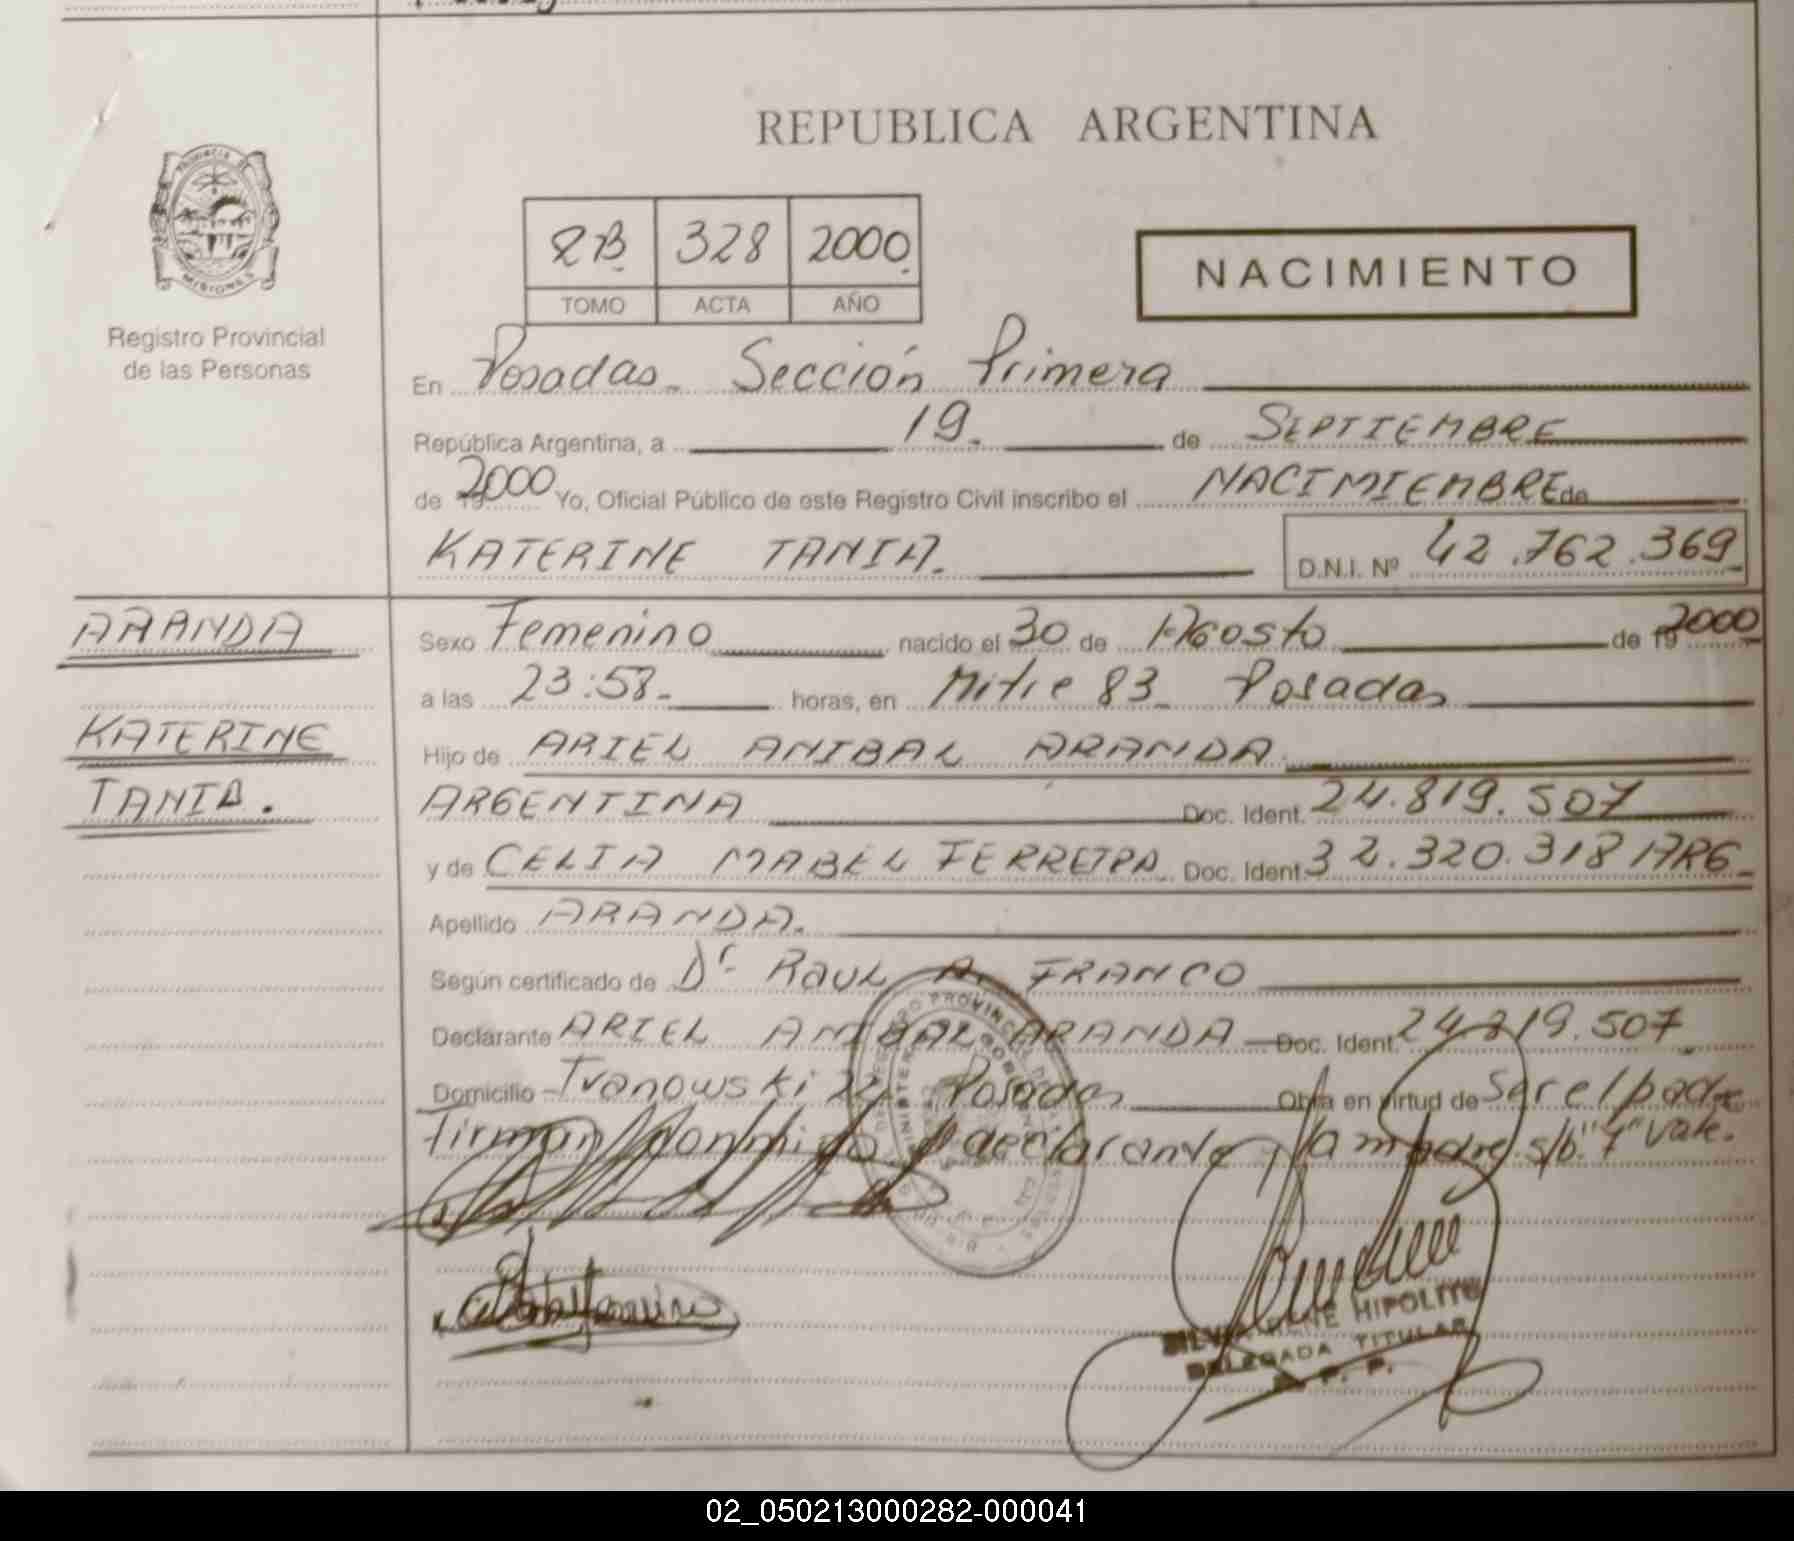 REPUBLICA ARGENTINA
PROVINCIA DE
MISIONES
Registro Provincial
de las Personas
2B 328 2000
TOMO ACTA AÑO
NACIMIENTO
En Posadas Sección Primera
República Argentina, a 19 de SEPTIEMBRE
de 2000 Yo, Oficial Público de este Registro Civil inscribo el NACIMIEMBRE de
KATERINE TANIA. D.N.I. Nº 42.762.369
ARANDA
KATERINE
TANIA.
Sexo Femenino nacido el 30 de Agosto de 19 2000
a las 23:58 horas, en Mitre 83 Posadas
Hijo de ARIEL ANIBAL ARANDA
ARGENTINA Doc. Ident. 24.819.507
y de CELIA MABEL FERREIRA Doc. Ident. 32.320.318 ARG
Apellido ARANDA.
Según certificado de Dr. RAUL A. FRANCO
Declarante ARIEL ANIBAL ARANDA Doc. Ident. 24.819.507
Domicilio Ivanowski Posadas Obra en virtud de Ser el padre
Firman conmigo declarante la madre s/b. "f" Vale.
HIPOLITO
DELEGADA TITULAR
R. P. P.
02_050213000282-000041